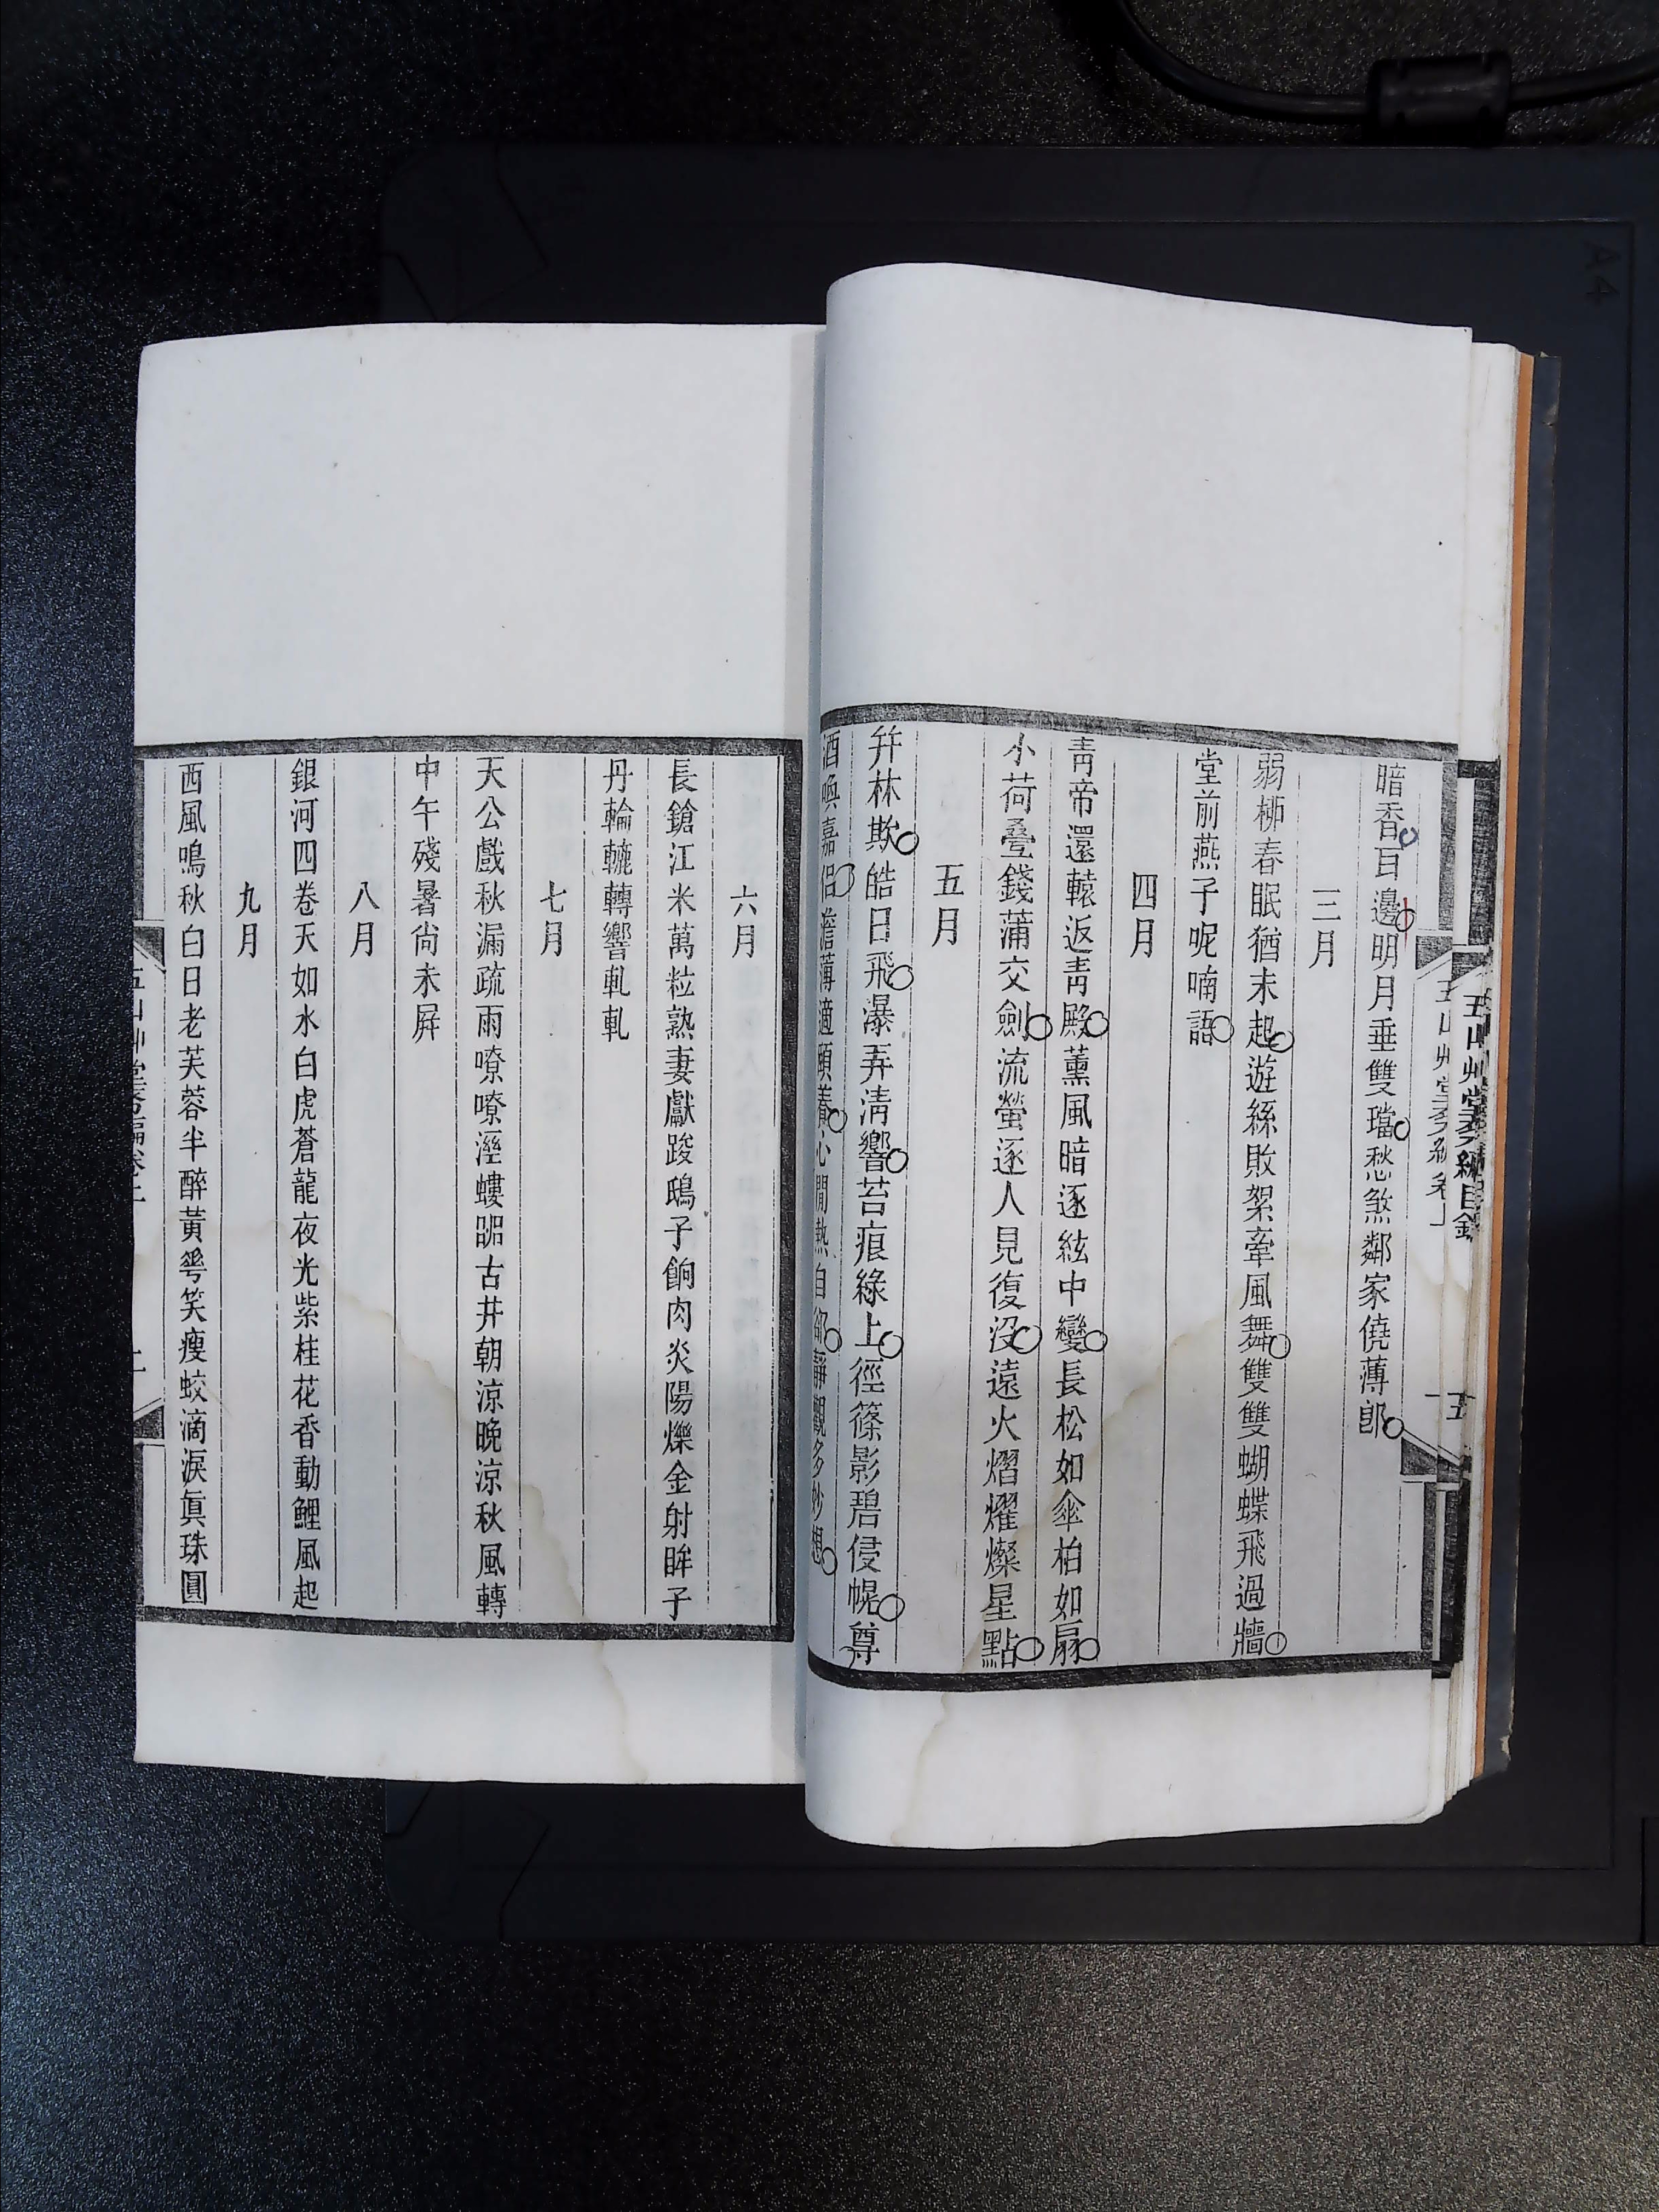 五山艸堂初編目錄
五
暗香耳邊明月垂雙璫愁煞鄰家僥薄郎
三月
弱柳春眠猶未起遊絲敗絮牽風舞雙雙蝴蝶飛過牆
堂前燕子呢喃語
四月
靑帝還轅返靑殿薰風暗逐絃中變長松如傘柏如扇
小荷疊錢蒲交劍流螢逐人見復没遠火熠燿燦星點
五月
幷林欺皓日飛瀑弄淸響苔痕綠上徑篠影碧侵幌尊
酒喚嘉侣澹薄適頤養心閒熱自卻靜觀多妙想
六月
長鎗江米萬粒熟妻獻踆鴟子餉肉炎陽爍金射眸子
丹輪轆轉響軋軋
七月
天公戲秋漏疏雨嘹嘹溼螻嘂古井朝涼晚涼秋風轉
中午殘暑尙未屛
八月
銀河四卷天如水白虎蒼龍夜光紫桂花香動鯉風起
九月
西風鳴秋白日老芙蓉半醉黃花笑瘦蛟滴淚眞珠圓